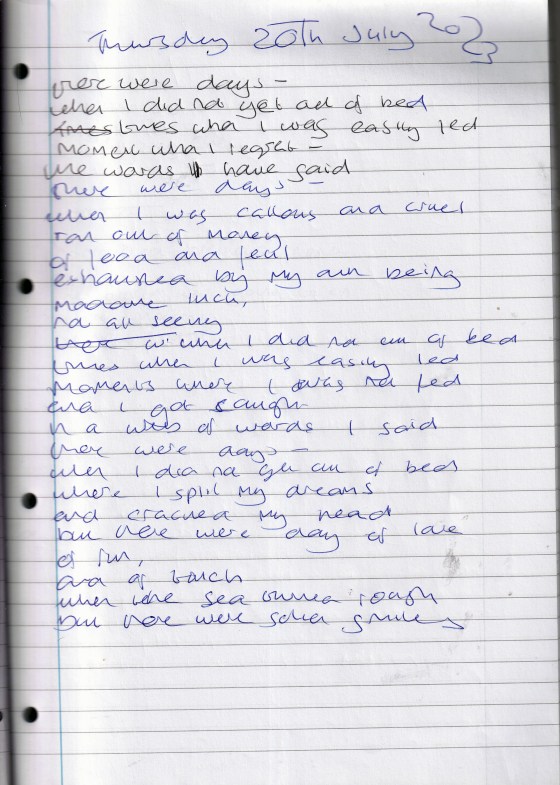 Thursday 20th July 2023
there were days -
when I did not get out of bed
times when I was easily led
moments when I regret -
the words I have said
there were days -
when I was callous and cruel
ran out of money
of food and fuel
exhausted by my own being
madame luck,
not all seeing
when I did not out of bed
times when I was easily led
moments where I was not fed
and I got caught
in a web of words I said
there were days -
when I did not get out of bed
where I split my dreams
and cracked my head
but there were day of love
of fun,
and of touch
when the sea turned rough
but there were softer smiles